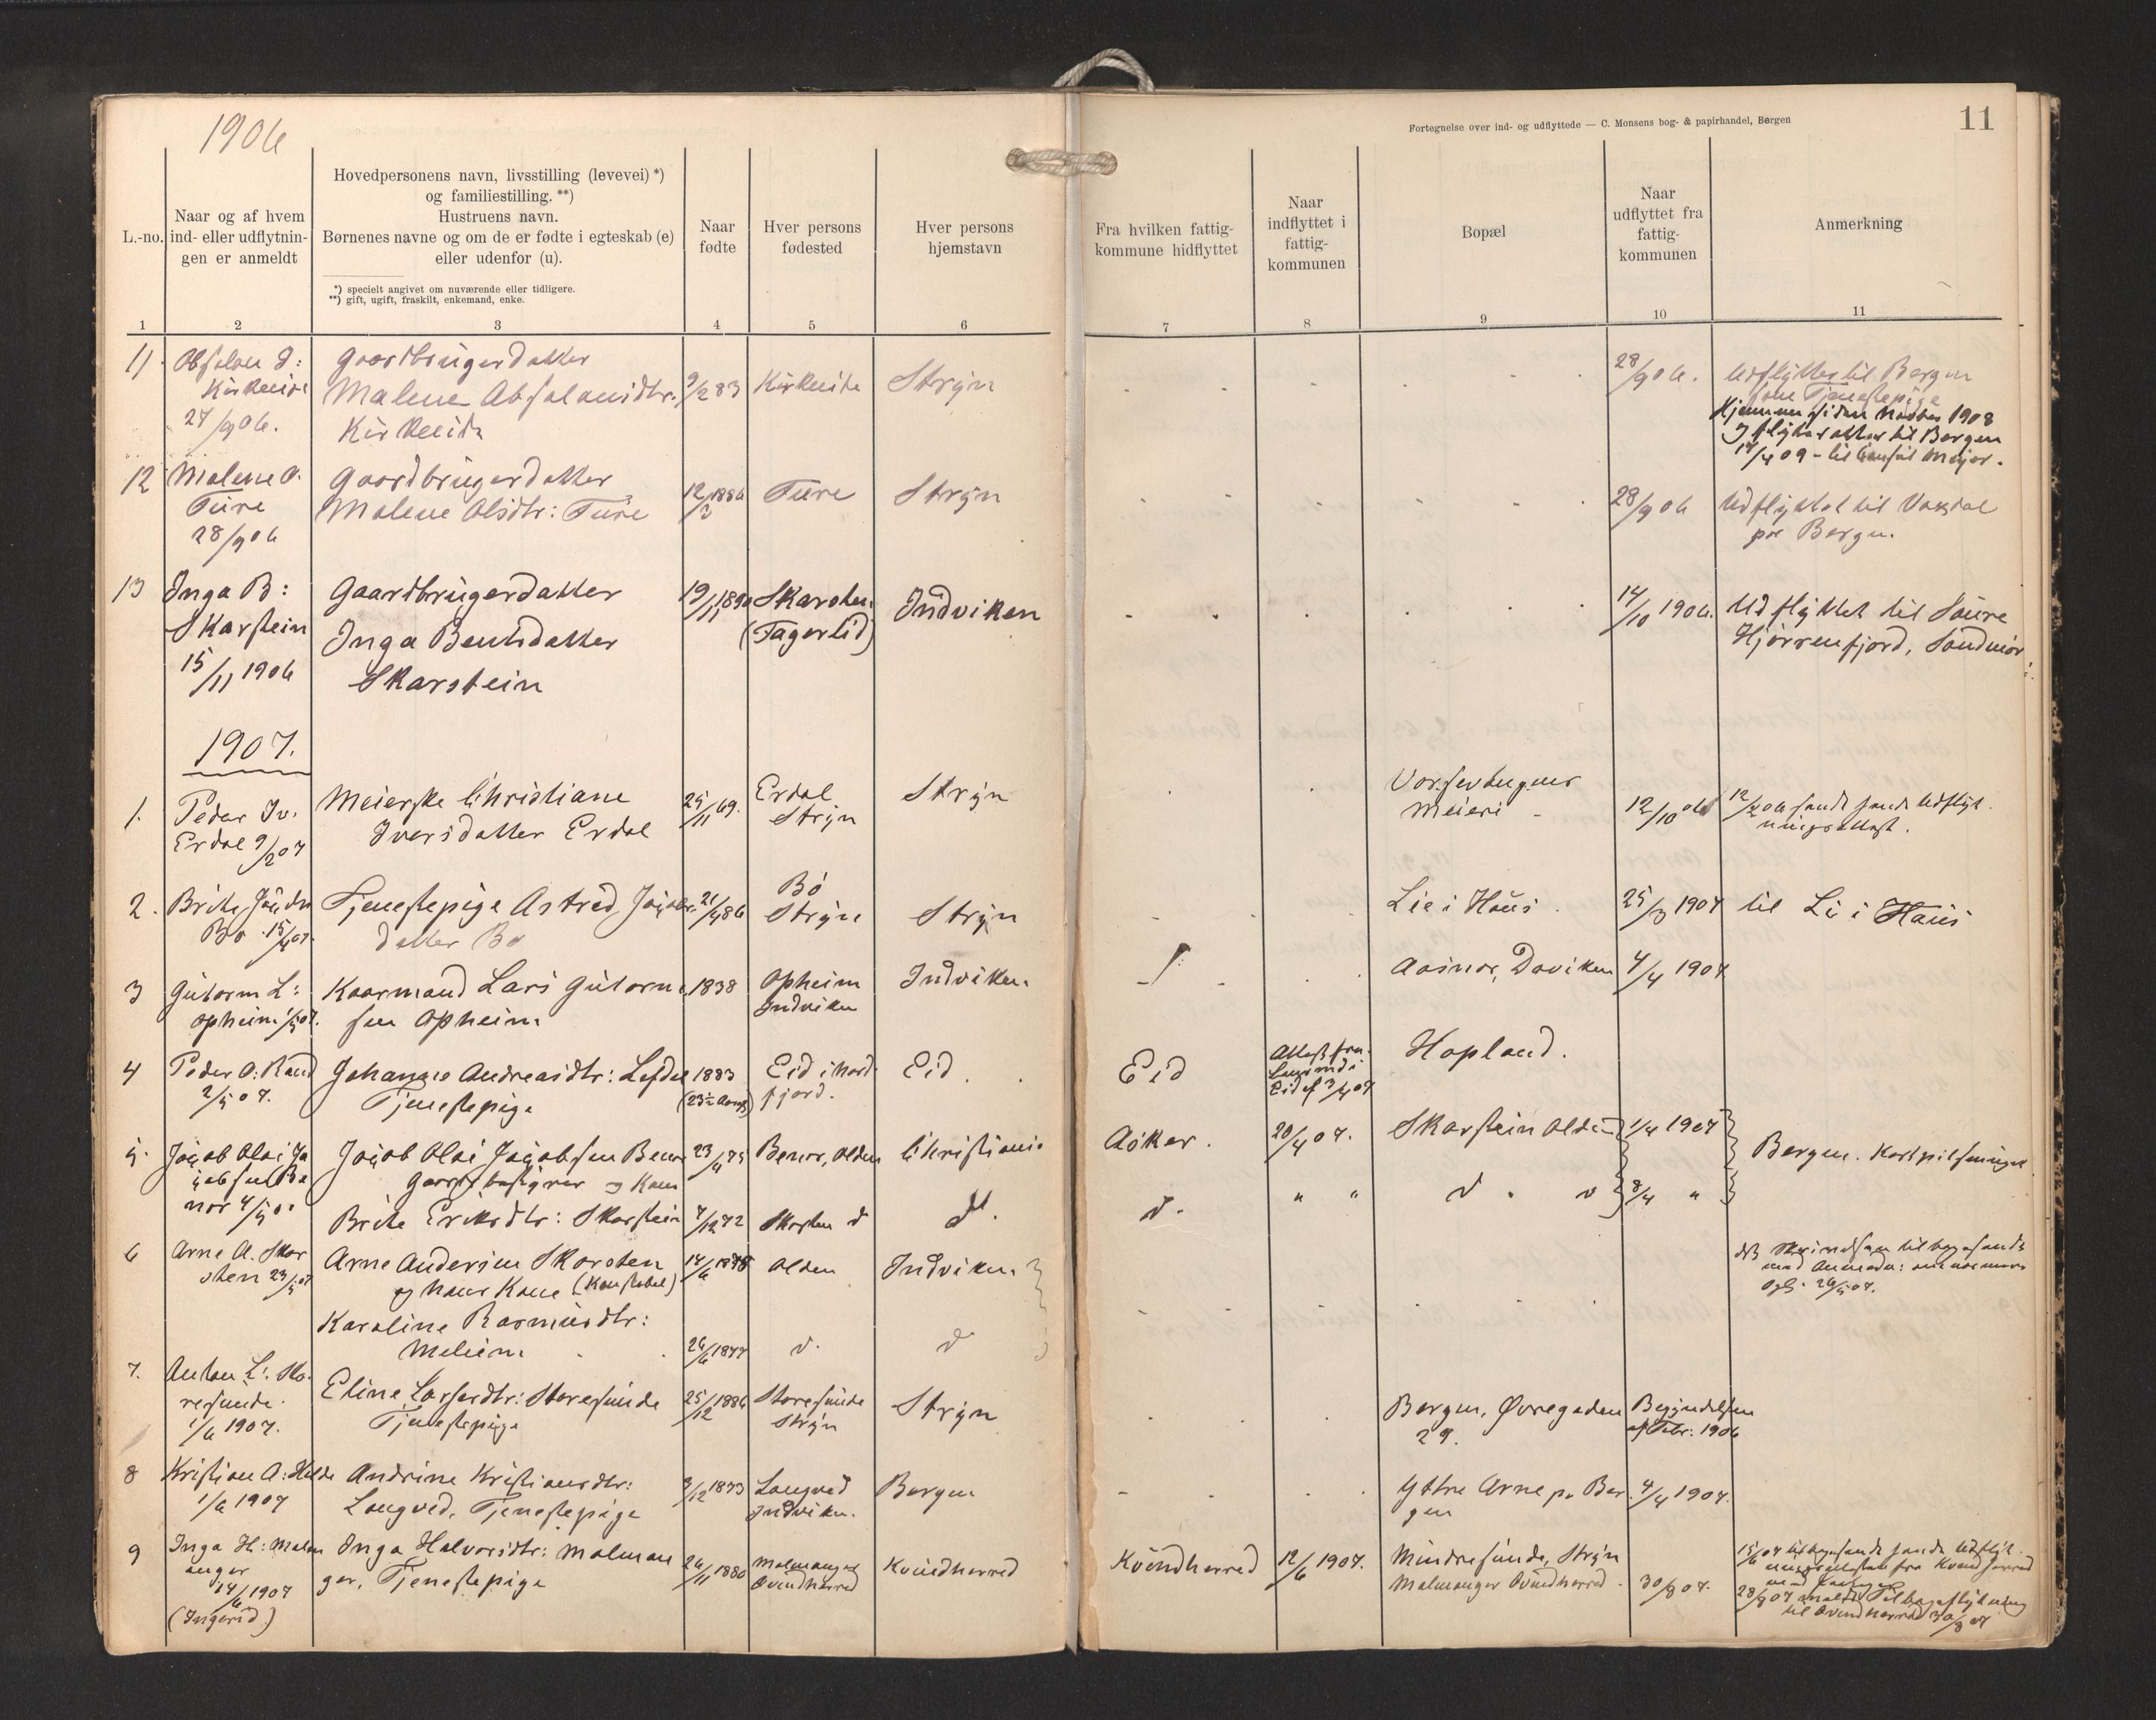 1906
11
Fortegnelse over ind- og udflyttede — C. Monsens bog- & papirhandel, Bergen
L.-no.
Naar og af hvem
ind- eller udflytnin-
gen er anmeldt
Hovedpersonens navn, livsstilling (levevei) *)
og familiestilling. **)
Hustruens navn.
Børnenes navne og om de er fødte i egteskab (e)
eller udenfor (u).
*) specielt angivet om nuværende eller tidligere.
**) gift, ugift, fraskilt, enkemand, enke.
Naar
fødte
Hver persons
fødested
Hver persons
hjemstavn
Fra hvilken fattig-
kommune hidflyttet
Naar
indflyttet i
fattig-
kommunen
Bopæl
Naar
udflyttet fra
fattig-
kommunen
Anmerkning
1 2 3 4 5 6 7 8 9 10 11
11.
Kirkeeide
27/9 06.
Gaardbrugerdatter
Malene Absalonsdtr.
Kirkeeide
9/2 83
Kirkeeide
Stryn
28/9 06.
Udflyttet til Bergen
som Tjenestepige
14/4 09 - til Consul Meyer.
12
Malene O.
Ture
28/9 06
Gaardbrugerdatter
Malene Olsdtr: Ture
12/3 1886
Ture
Stryn
28/9 06
Udflyttet til Vaxdal
pr Bergen.
13
Inga B:
Skarstein
15/11 1906
Gaardbrugerdatter
Inga Bentsdatter
Skarstein
19/11 1890
Skarsten
(Fagerlid)
Indviken
14/10 1906.
Udflyttet til Saure
Hjørrenfjord, Søndmør
1907.
1.
Peder Iv.
Erdal 9/2 07
Meierske Christiane
Iversdatter Erdal
25/11 69.
Erdal
Stryn
Stryn
Meieri
12/10 06
2.
Brite
Bø 15/4 07.
Tjenestepige Astred
datter Bø
21/4 86
Bø
Stryn
Stryn
Lie i Haus
25/3 1907
til Li i Haus
3
Gutorm L:
Opheim
Kaarmand Lars Gutorm
sen Opheim
1838
Opheim
Indviken
Indviken
Daviken
4/4 1907
4
Peder A: Rand
2/5 07.
Johanne Andreasdtr: Lefdal
Tjenestepige
1883
Eid i Nord
fjord.
Eid.
Eid
Attest fra
Lensmd i
Eid af 3/4 07
Hopland.
5.
Jacob Olai Ja
cobsen Be
nor
Jacob Olai Jacobsen Benor
og Kone
Brite Eriksdtr: Skarstein
23/11 75
7/12 72
Benor, Olden
Skarsten d
Christiania
d.
Asker.
d.
20/4 07.
" "
Skarstein Olden
d. d
1/4 1907
8/4 "
Bergen.
6
Arne A. Skar
sten 23/5 07
Arne Andersen Skarsten
og hans Kone (Konstabel)
Karoline Rasmusdtr:
Meliem
14/6 1875
26/6 1877
Olden
d.
Indviken
d
7.
Anton L: Sto-
resunde
1/6 1907.
Eline Larsesdtr: Storesunde
Tjenestepige
25/12 1886
Storesunde
Stryn
Stryn
Bergen, Øvregaden
29.
Begyndelsen
af Febr: 1906
8
Kristian A: Hilde
1/6 1907
Andrine Kristiansdtr:
Langved, Tjenestepige
9/12 1873
Langved
Indviken.
Bergen
Yttre Arne pr Ber
gen
4/4 1907.
9
Inga H: Malm
anger
14/6 1907
(Ingerid)
Inga Halvorsdtr: Malman
ger, Tjenestepige
26/11 1880
Malmanger
Qvindherred
Kvindherred
Kvindherred
12/6 1907.
Mindresunde, Stryn
Malmanger Qvindherred.
30/8 07.
til Qvindherred 30/8 07